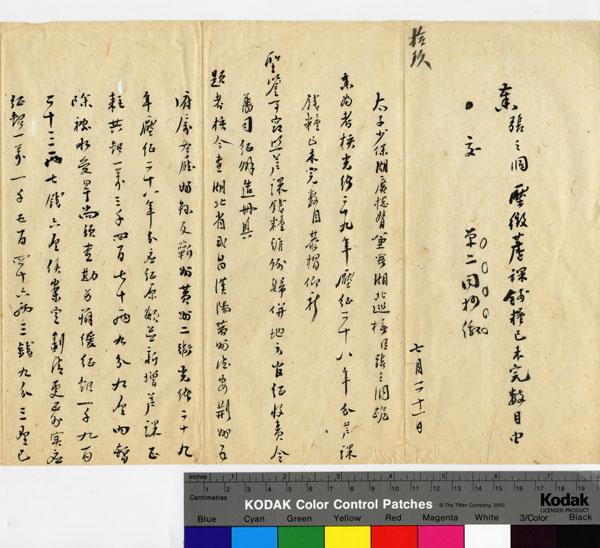 拾玖
奏 張之洞 壓徵蘆課錢糧已未完數目由
交
單二同抄繳
七月二十一日
太子少保湖廣總督兼署湖北巡撫臣張之洞跪
奏為考核光緒二十九年壓征二十八年分蘆課
錢糧已未完數目恭摺仰祈
聖鑒事竊照蘆課錢糧維係歸併地方官征收責令
藩司征解造冊具
題考核今查湖北省武昌漢陽黃州德安荊州五
府屬各廳州縣及蘄州黃州二衛光緒二十九
年壓征二十八年分應征原額並新增蘆課正
耗共銀一萬三千四百七十兩九分九厘內暫
除被水受旱尚須查勘另請緩征銀一千七百
二十三兩七錢六厘俟案定劃清更易實應
征銀一萬一千七百四十六兩三錢九分三厘已
Inches 1 2 3 4 5 6 7
Centimetres 1 2 3 4 5 6 7 8 9 10 11 12 13 14 15 16 17 18 19
KODAK Color Control Patches © The Tiffen Company, 2000 Kodak
LICENSED PRODUCT
Blue Cyan Green Yellow Red Magenta White 3/Color Black